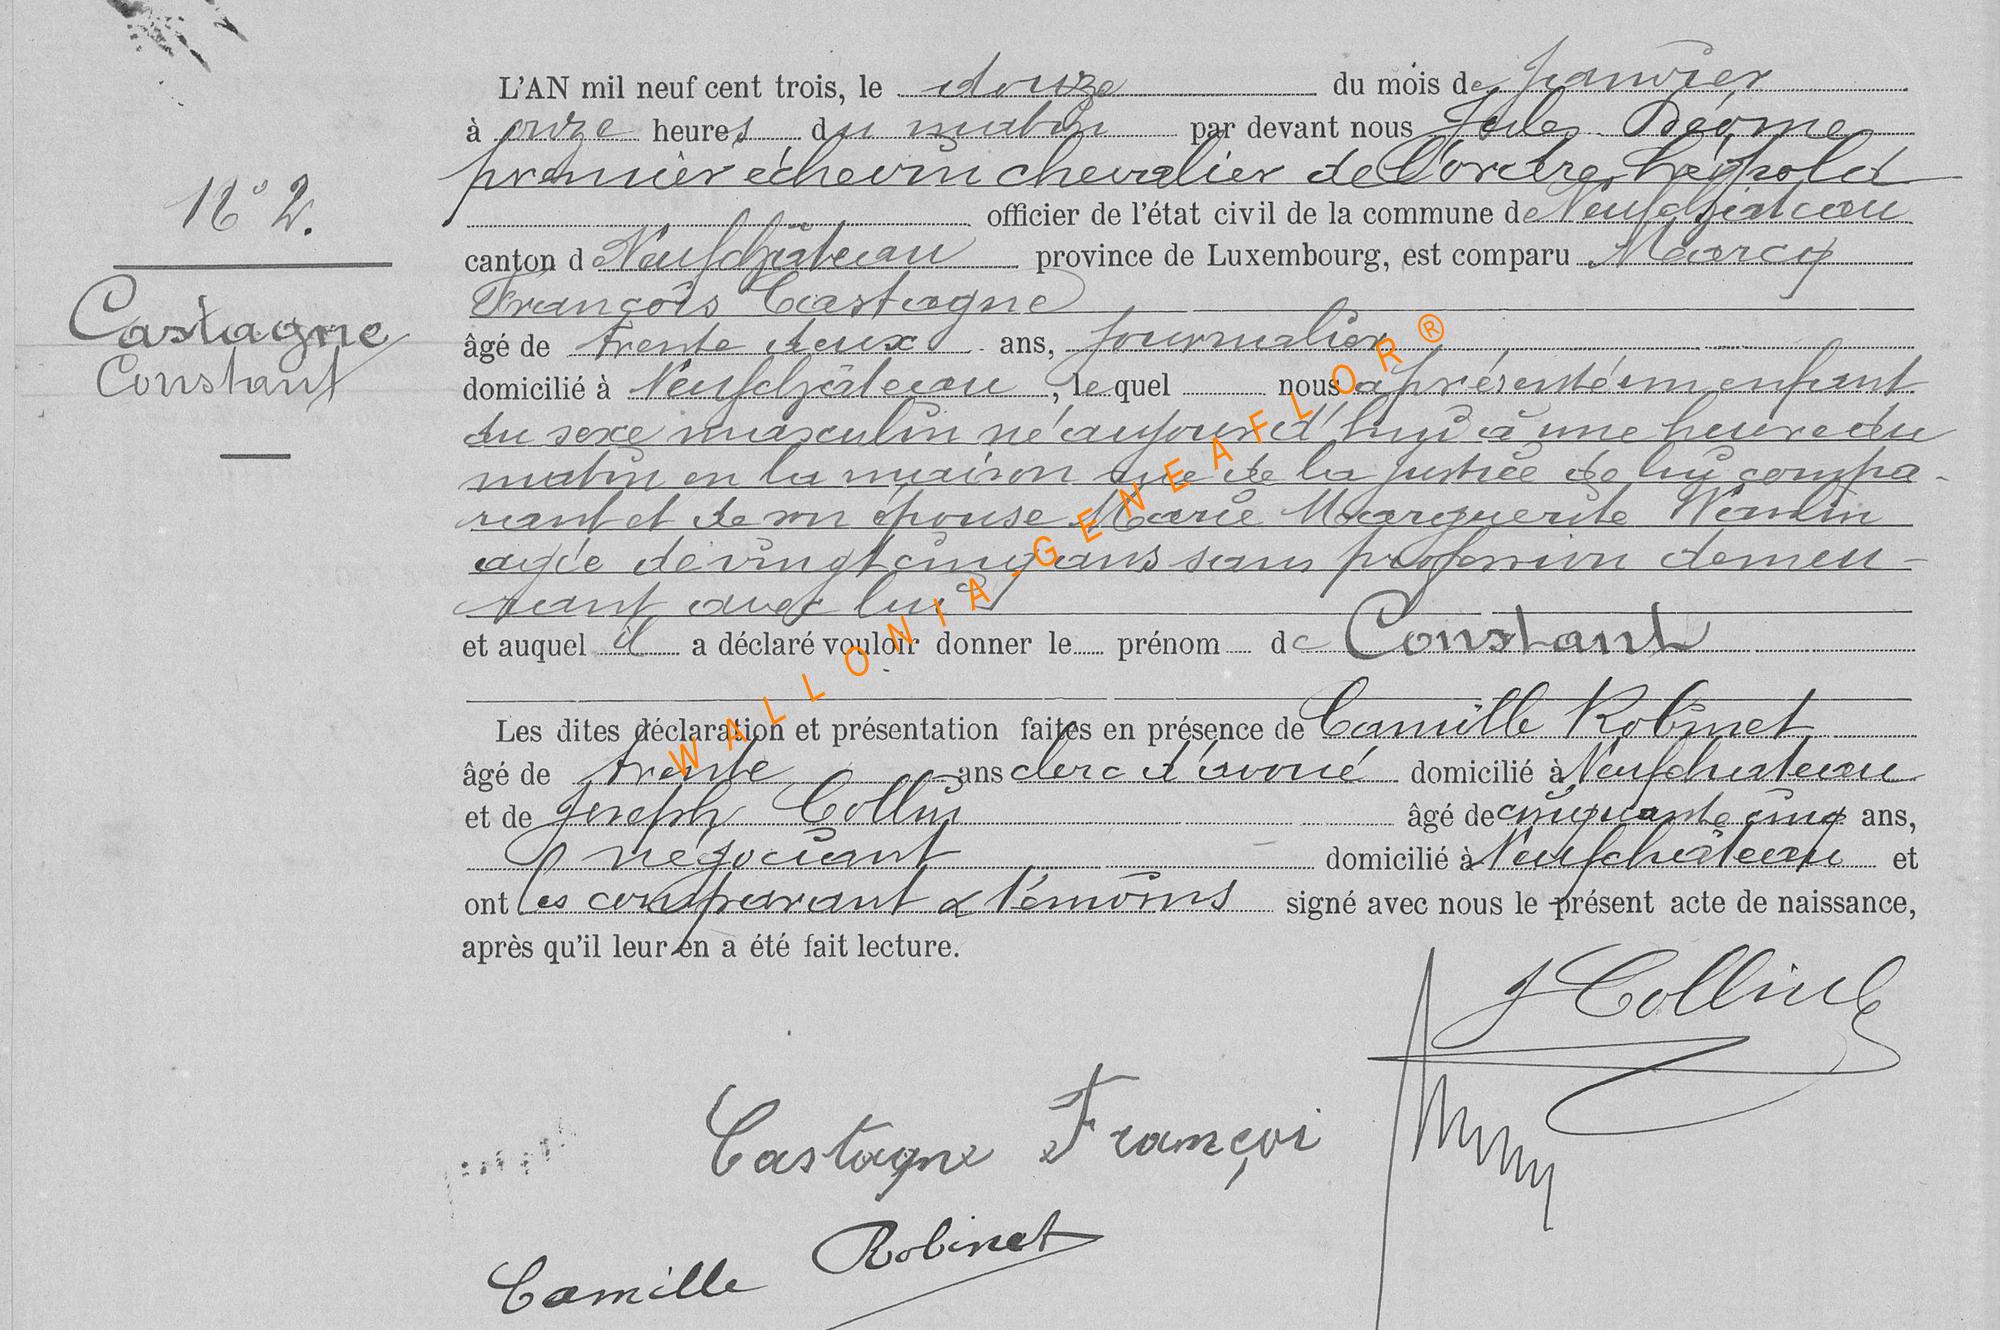 N° 2.
Castagne
Constant
L'AN mil neuf cent trois, le douze du mois de Janvier
à onze heures du matin par devant nous Jules
premier échevin chevalier de l'ordre Léopold
officier de l'état civil de la commune de Neufchâteau
canton de Neufchâteau province de Luxembourg, est comparu Marcq
François Castagne
âgé de trente deux ans, journalier
domicilié à Neufchâteau, lequel nous a présenté un enfant
du sexe masculin né aujourd'huy à une heure du
matin en la maison rue de la justice de luy compa-
rant et de son épouse Marie Marguerite
agée de vingt cinq ans sans profession demeu-
rant avec lui
et auquel il a déclaré vouloir donner le prénom de Constant
Les dites déclaration et présentation faites en présence de Camille Robinet
âgé de trente ans clerc d'avoué domicilié à Neufchateau
et de Joseph Collin âgé de cinquante cinq ans,
négociant domicilié à Neufchâteau et
ont les comparant & témoins signé avec nous le présent acte de naissance,
après qu'il leur en a été fait lecture.
J Collin
Castagne Françoi
Camille Robinet
WALLONIA-GENEAFLOR®